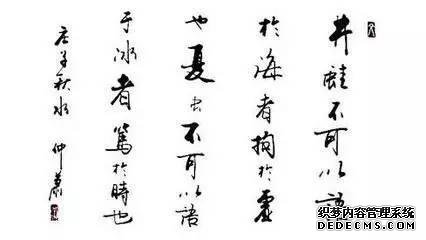 井蛙不可以語
於海者拘於虛
也夏虫不可以語
于冰者篤於時也
庄子秋水 仲
织梦内容管理系统
DEDECMS.COM